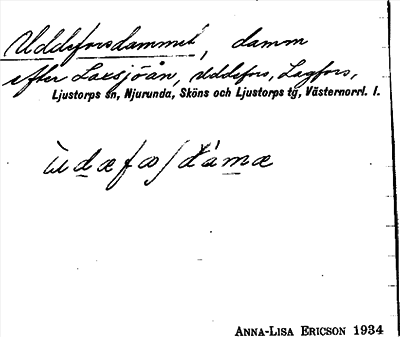 Uddeforsdammet, damm
efter Laxsjöån, Uddefors, Lagfors,
Ljustorps sn, Njurunda, Sköns och Ljustorps tg, Västernorrl. l.
ANNA-LISA ERICSON 1934